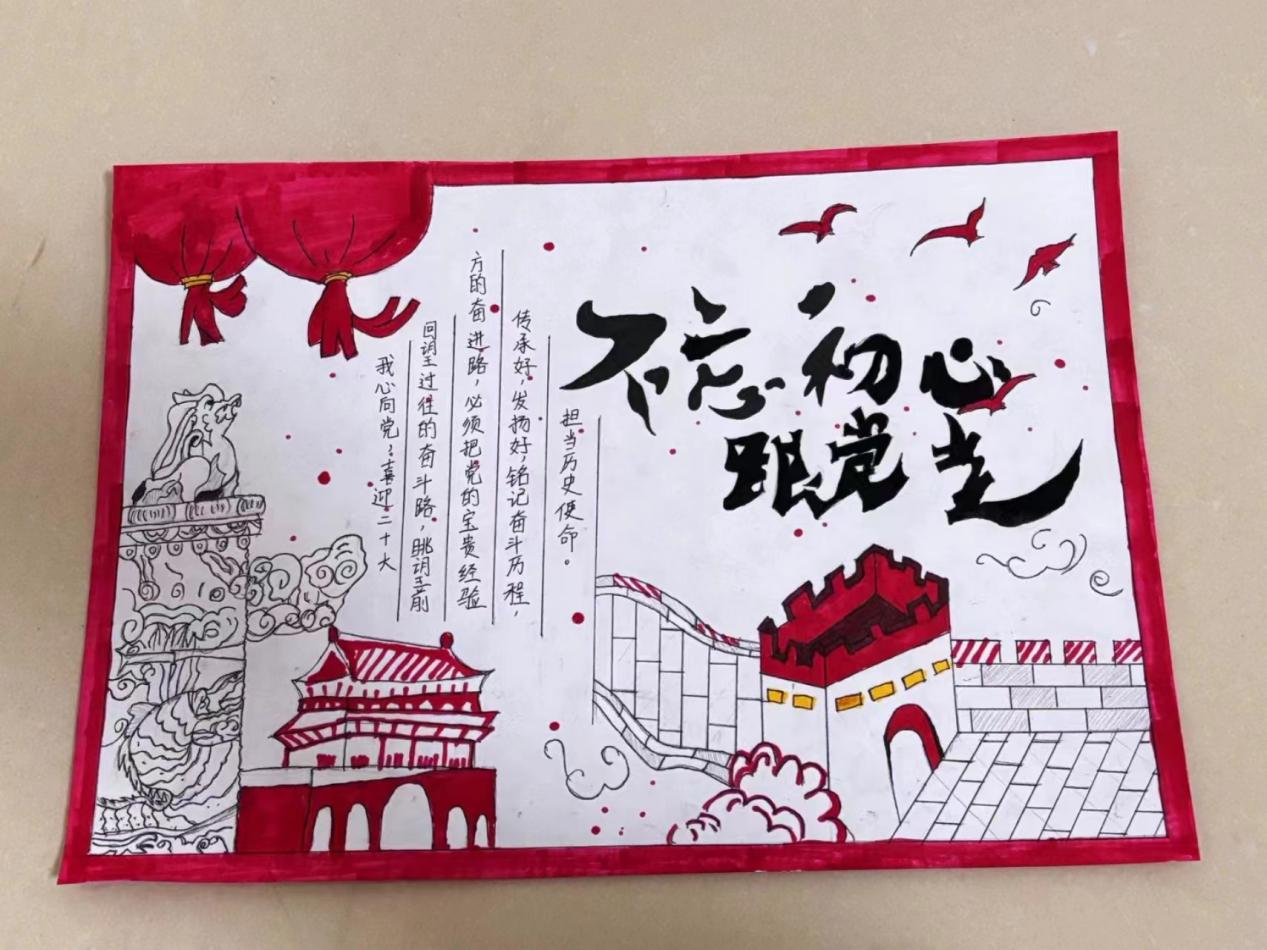 不忘初心
跟党走
我心向党；喜迎二十大
回望过往的奋斗路，眺望前
方的奋进路，必须把党的宝贵经验
传承好，发扬好，铭记奋斗历程，
担当历史使命。